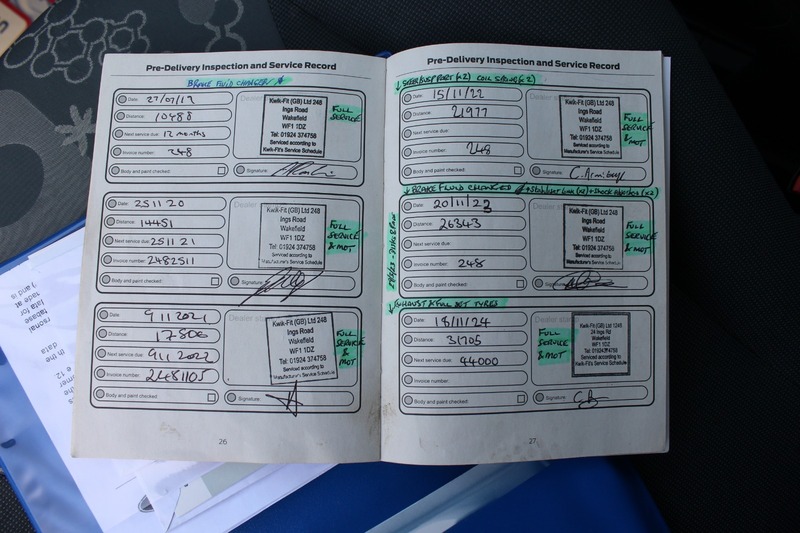 Pre-Delivery Inspection and Service Record
BRAKE FLUID CHANGED
Date: 27/07/19
Distance: 10488
Next service due: 12 months
Invoice number: 248
Body and paint checked:
Kwik-Fit (GB) Ltd 248
Ings Road
Wakefield
WF1 1DZ
Tel: 01924 374758
Serviced according to
Kwik-Fit's Service Schedule
FULL
SERVICE
& MOT
Signature:
Date: 25 11 20
Distance: 14451
Next service due: 25 11 21
Invoice number: 2482511
Body and paint checked:
Kwik-Fit (GB) Ltd 248
Ings Road
Wakefield
WF1 1DZ
Tel: 01924 374758
Serviced according to
Manufacturer's Service Schedule
FULL
SERVICE
& MOT
Signature:
Date: 9 11 2021
Distance: 17806
Next service due: 9 11 2022
Invoice number: 2481105
Body and paint checked:
Kwik-Fit (GB) Ltd 248
Ings Road
Wakefield
WF1 1DZ
Tel: 01924 374758
Serviced according to
Manufacturer's Service Schedule
FULL
SERVICE
& MOT
Signature:
26
Pre-Delivery Inspection and Service Record
COIL SPRING (x2)
Date: 15/11/22
Distance: 21977
Next service due:
Invoice number: 248
Body and paint checked:
Kwik-Fit (GB) Ltd 248
Ings Road
Wakefield
WF1 1DZ
Tel: 01924 374758
Serviced according to
Manufacturer's Service Schedule
FULL
SERVICE
& MOT
Signature:
↓ BRAKE FLUID CHANGED
Date: 20/11/23
Distance: 26343
Next service due:
Invoice number: 248
Body and paint checked:
Kwik-Fit (GB) Ltd 248
Ings Road
Wakefield
WF1 1DZ
Tel: 01924 374758
Serviced according to
Manufacturer's Service Schedule
FULL
SERVICE
& MOT
Signature:
EXHAUST & FULL SET TYRES
Date: 18/11/24
Distance: 31705
Next service due: 44000
Invoice number:
Body and paint checked:
FULL
SERVICE
& MOT
Kwik-Fit (GB) Ltd 1248
24 Ings Rd
Wakefield
WF1 1DZ
Serviced according to
Manufacturer's Service Schedule
Signature:
27